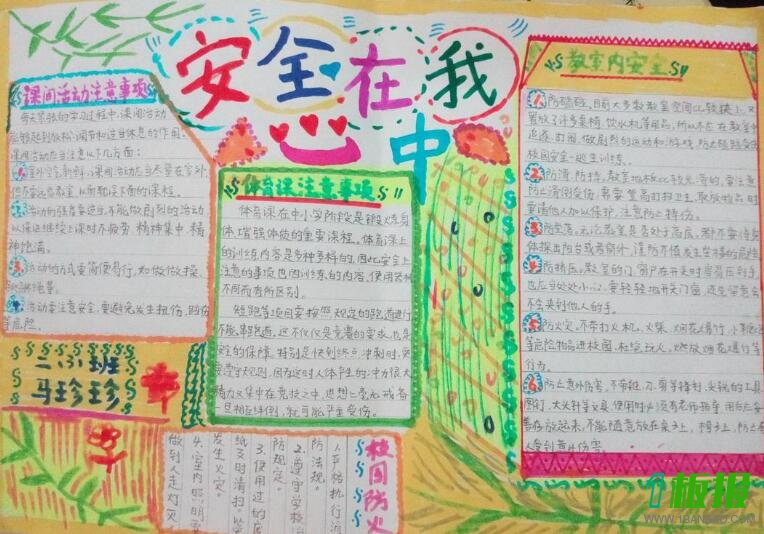 安全在我
心中
课间活动注意事项
在紧张的学习过程中,课间活动
能够起到放松、调节和适当休息的作用。
课间活动应当注意以下几方面:
1.室外空气新鲜,课间活动应当尽量在室外,
但不要远离教室,以免耽误下面的课程。
2.活动的强度要适当,不能做剧烈的活动,
以保证继续上课时不疲劳、精神集中、精
神饱满。
3.活动的方式要简便易行,如做做操
4.活动要注意安全,要避免发生扭伤、
等危险。
二(6)班
马珍珍
体育课注意事项
体育课在中小学阶段是锻炼身
体、增强体质的重要课程。体育课上
的训练内容是多种多样的,因此安全上
注意的事项也因训练的内容、使用
不同而有所区别。
短跑等项目要按照规定的跑道进行,
不能串跑道。这不仅仅是竞赛的要求,也是
安全的保障。特别是快到终点冲刺时,
遵守规则,因为这时人体产生的冲力很大
精力又集中在竞技之中,思想上毫无戒备,
旦相互绊倒,就可能严重受伤。
教室内安全
1.防磕碰。目前大多数教室空间比较狭小,又
置放了许多桌椅、饮水机等用品,所以不应在教室中
追逐、打闹,做剧烈的运动和游戏,防止磕碰受伤
校园安全
2.防滑、防摔。教室地板比较光滑的,要注意
防止滑倒受伤;需要登高打扫卫生、取放物品时,
要请他人加以保护,注意防止摔伤。
3.防坠落。无论教室是否处于高层,都不要将身
体探出阳台或者窗外,谨防不慎发生坠楼的危险。
4.防挤压。教室的门、窗户在开关时容易压到手,
也应当处处小心,要轻轻地开关门窗,还要留意会
不会夹到他人的手。
5.防火灾。不带打火机、火柴、烟花爆竹、小
等危险物品进校园,杜绝玩火、燃放烟花爆竹等
行为。
6.防止意外伤害。不带锥、刀、剪等锋利、尖锐的工具,
图钉、大头针等文具,使用时必须有老师指导,用后应妥
善存放起来,不能随意放在桌上、椅子上,防止有
人受到意外伤害。
校园防火
1.严格执行消
防法规。
2.遵守学校
防规定。
3.使用过的废
纸及时清扫,
发生火灾。
4.室内照明
做到人走灯灭
1板报
WWW.1BANBAO.COM